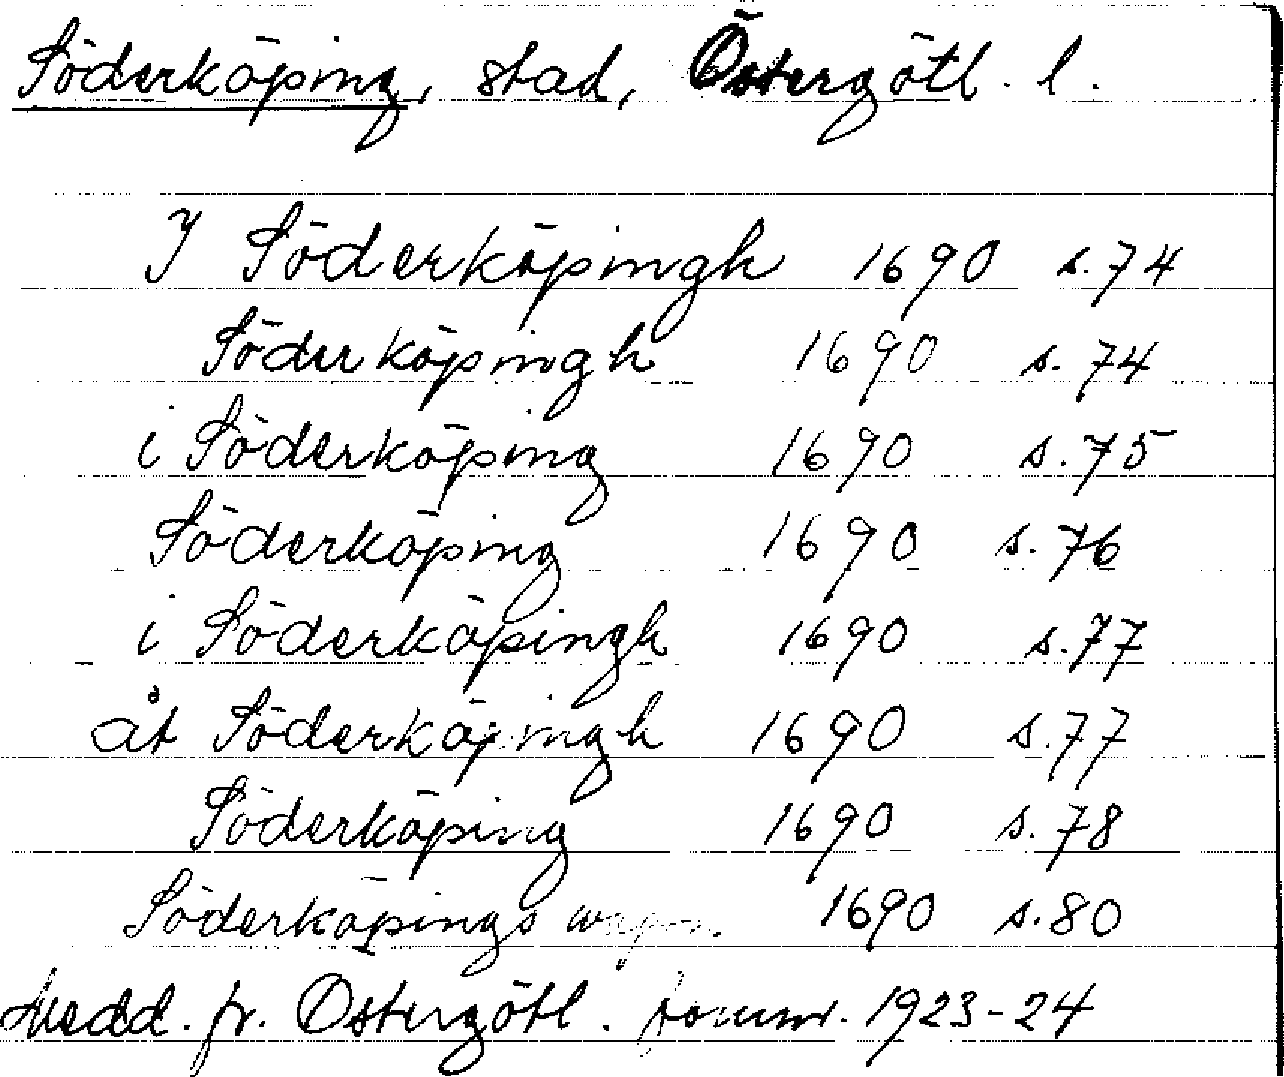 Söderköping, stad, Östergötl. l.
I Söderköpingh 1690 s.74
Söderköpingh 1690 s.74
i Söderköping 1690 s.75
Söderköping 1690 s.76
i Söderköpingh 1690 s.77
åt Söderköpingh 1690 s.77
Söderköping 1690 s.78
Söderköpings 1690 s.80
Medd. fr. Östergötl. fornm. 1923-24